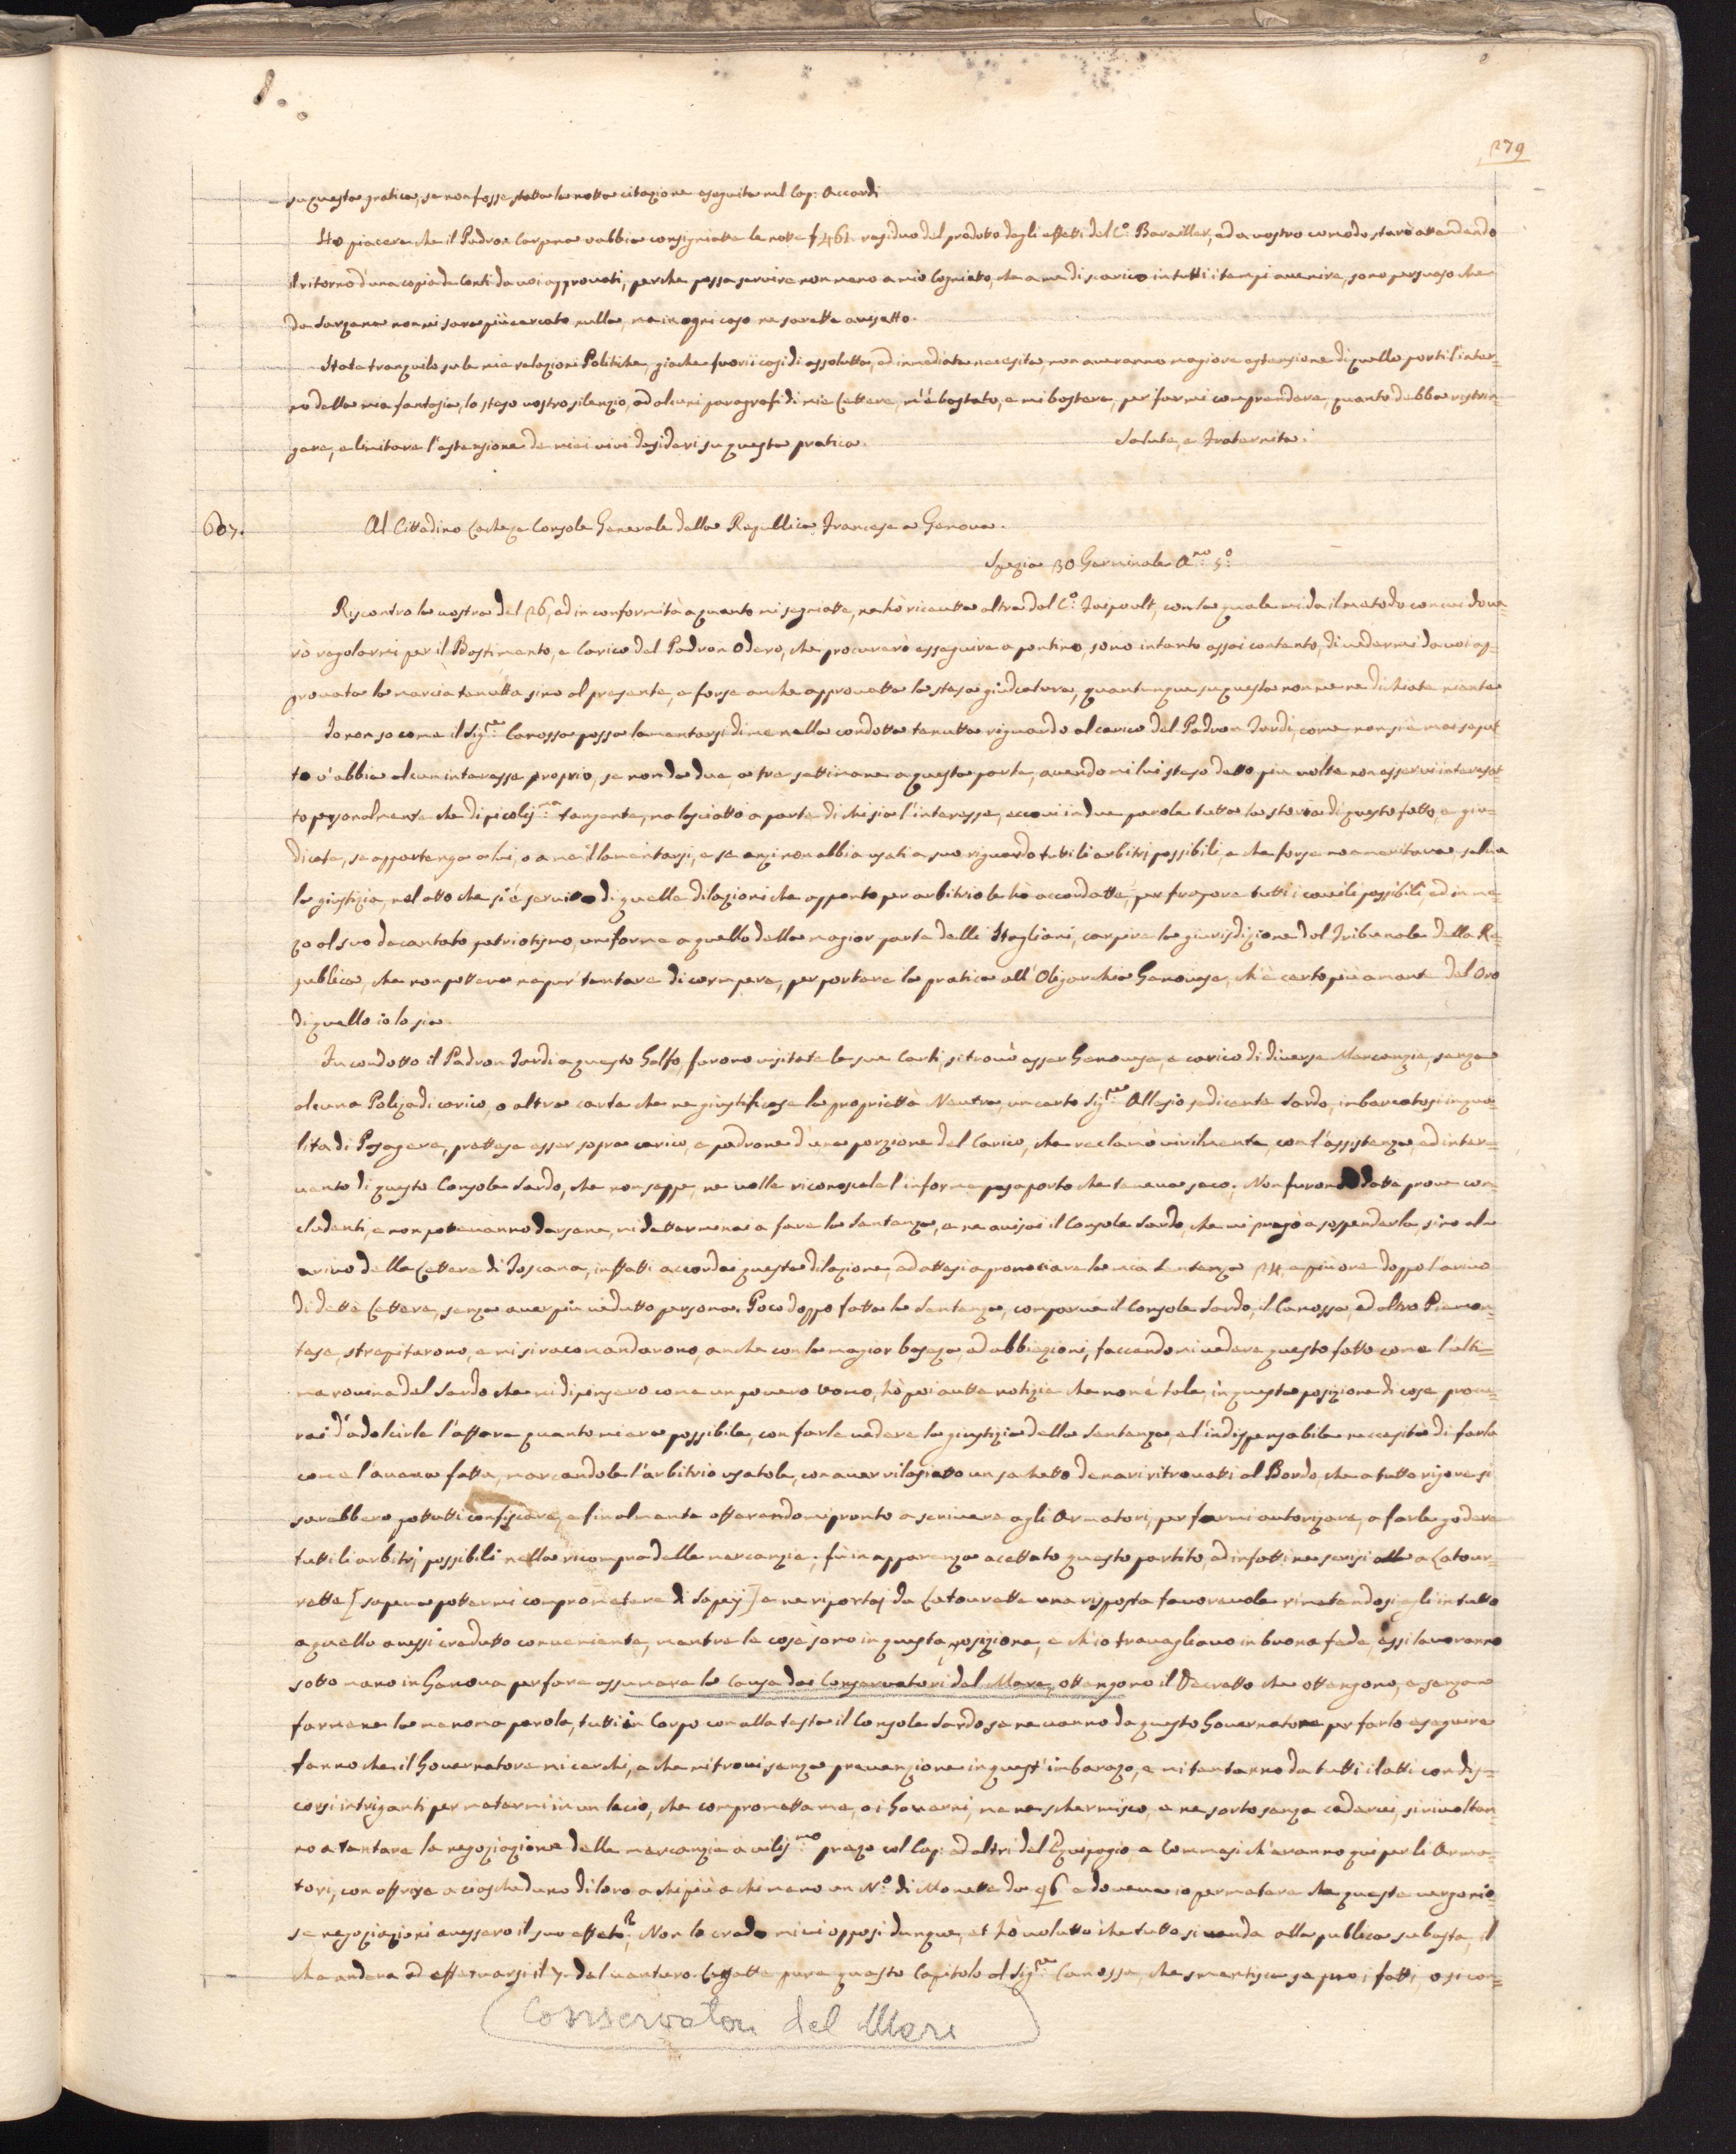 279
su questa pratica, se non fosse stata la nota citazione eseguita nel Cap: Accardi
Ho piacere che il Padron Carpena v'abbia consigniatte le note f 461. residuo del prodotto degli effetti del C.º Barailler, ed a vostro comodo starò attendendo
il ritorno d'una copia de Conti da voi approvati, perche possa servire non meno a mio Cogniatto, che a me di scarico in tutti i tempi avenire, sono persuaso che
da Sarzana non mi sarà più cercato nulla, ma in ogni caso ne sarette avisatto.
State tranquilo su le mie relazioni Politiche, giache fuori i casi di assolutta, ed inmediata necesita, non averanno magiore estensione di quello porti l'inter-
no della mia fantasia, lo steso vostro silenzio, ad alcuni paragrafi di mie Lettere, m'è bastato, e mi bastera, per farmi comprendere, quanto debba restrin-
gere, e limitare l'estensione de miei vivi desideri su questa pratica. Salute, e Fraternita.
607.
Al Cittadino Lacheze Console Generale della Republica Francese a Genova.
Spezia 30 Germinale A.no 5.º
Riscontro la vostra del 26, ed in conformità a quanto mi segniatte, ne hò riceutta altra dal C.º Faipoult, con la quale mi da il metodo con cui dove-
rò regolarmi per il Bastimento, e Carico del Padron Odero, che procurerò esseguire a pontino, sono intanto assai contento, di vedermi da voi ap-
provata la marcia tenutta sino al presente, e forse anche approvatta la stesa giudicatura, quantunque su questa non me ne dichiate niente
Io non so come il Sig.re Canossa possa lamentarsi di me nella condotta tenutta riguardo al carico del Padron Tardi, come non si è mai seput
to v'abbia alcun interesse proprio, se non da due, o tre settimane a questa parte, avendomi lui steso detto più volte non esservi interesat-
to personalmente che di picolis.ma tangente, ma lasciatto a parte di chi sia l'interesse, eccovi in due parole tutta la storia di questo fatto, e giu-
dicate, se appartenga a lui, o a me il lamentarsi, e se anzi non abbia usati a suo riguardo tutti li arbitrj possibili, e che forse no ameritava salva
la giustizia, nel atto che si è servitto di quelle dilazioni che apponto per arbitrio le hò accordatte, per frapore tutti i cavili possibili, ed in me-
zo al suo decantato patriotismo, uniforme a quello della magior parte delli Itagliani, carpire la giurisdizione dal Tribunale della Re-
publica, che non poteva nepur tentare di corrompere, per portare la pratica all'Oligarchia Genovese, ch'è certo più amante del Oro
di quello io lo sia.
Fu condotto il Padron Tardi a questo Golfo, furono visitate le sue Carti, si trovò esser Genovese, e carico di diverse Marcanzie, senza
alcuna Poliza di carico, o altra carta che ne giustificase la proprietta Neutra, un certo Sig.re Allasio sedicente Sardo, inbarcatosi in qua-
lità di Pasagere, prettese esser sopra carico, e padrone d'una porzione del Carico, che reclamò vivamente, con l'assistenza, ed inter-
vento di questo Console Sardo, che non seppe, ne volle riconoscele l'informe pasaporto che teneva seco. Non furono datte prove con-
cludenti, e non pottevanno darsene, mi dettarminai a fare la Santenza, e ne avisai il Console Sardo, che mi pregò a sospenderla, sino al
arrivo della Lettere di Toscana, infatti accordai questa dilazione, ed attesi a pronociare la mia Sentenza 24 e più ore doppo l'arivo
di dette Lettere, senza aver più vedutto persona. Poco doppo fatta la Santenza, comparve il Console Sardo, il Canossa, ed altro Piamon-
tese, strepitarono, e mi si racomandarono, anche con la magior baseza, ed abbiezioni, faccendomi vedere questo fatto come l'ulti-
ma rovina del Sardo che mi dipinsero come un povero Uomo, hò poi autta notizia che non è tale, in questa posizione di cose procu-
rai d'adolcirle l'affare quanto mi era possibile, con farle vedere la giustizia della Santenza, el'indispensabile neccesità di farla
come l'aveva fatta, marcandole l'arbitrio usatole, con aver rilasiatto un sachetto denari ritrovatti al Bordo, che a tutto rigore si
sarabbero pottutti confiscare, e finalmente offarendomi pronto a scrivere agli Armatori, per farmi autorizare, a farle godere
tutti li arbitrj possibili nella ricompra delle marcanzie; fù in apparenza acettato questo partito, ed infatti ne scrisi a Latour-
rette [sapeva pottermi comprometere di Sapey] e ne riportaj da Latourette una risposta favorevole rimetendosi egli in tutto
a quello avessi credutto conveniente, mentre le cose sono in questa posizione, e ch'io travagliavo in buona fede, essi lavoranno
sotto mano in Genova per fare assumere la Causa da Conservatori del Mare, ottengono il Decretto che ottengono, e senza
farmene la menoma parola, tutti in Corpo con alla testa il Console Sardo se ne vanno da questo Governatore per farlo eseguire
fanno che il Governatore mi cerchi, e che mi trovi senza prevenzione in quest'imbarazo, e mi tentanno da tutti i latti con dis-
corsi intriganti per metermi in un lacio, che comprometta me, o i Governi, ma ne schermisco, e ne sorto senza cederci, si rivoltan-
no a tentare la negoziazione delle mercanzie a vilis.mo prezo col Cap: ed altri del Equipagio, e Commesi ch'eranno qui per li Arma-
tori, con offrire a ciascheduno di loro a chi più e chi meno un N.º di Monette da 96 e doveva io permetere che queste vergonio-
se negoziazioni avessero il suo effetto? Non lo credo mi vi opposi dunque, et hò volutto che tutto si venda alla publica subasta, il
che andera ad effetuarsi il 7. del venturo. Legette pure questo Capitolo al Sig.re Canossa, che smentisca se può i fatti, o si con-
Conservatori del Mare